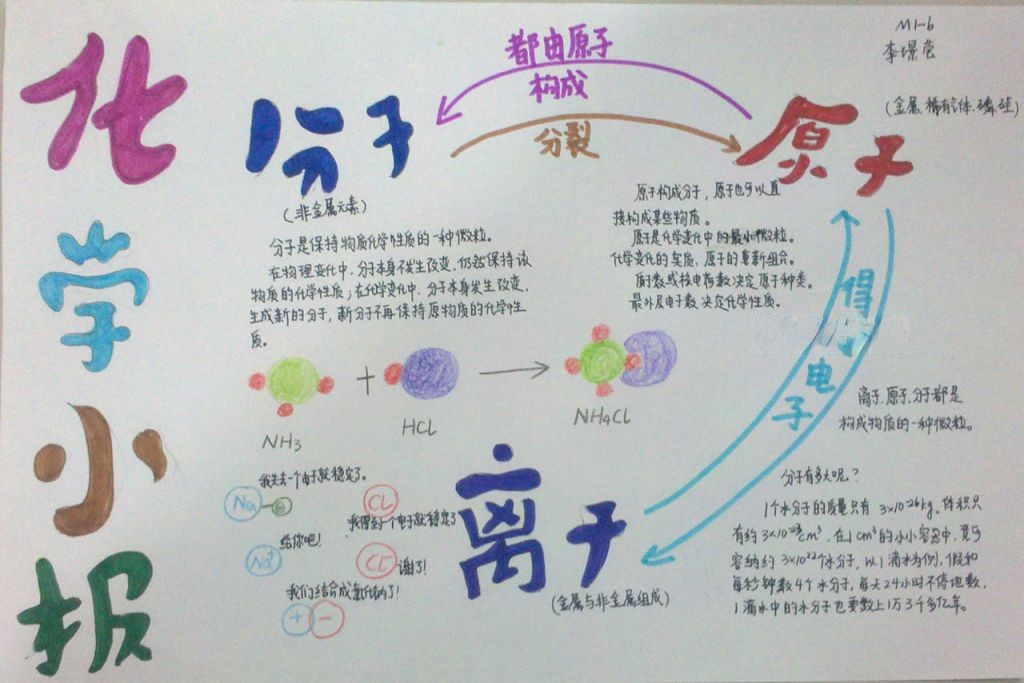 化学小报
M1-6
李璟莹
都由原子
构成
分裂
分子
(非金属元素)
原子
(金属.稀有气体.磷.硅)
分子是保持物质化学性质的一种微粒。
在物理变化中,分子本身不发生改变,仍然保持该
物质的化学性质;在化学变化中,分子本身发生改变,
生成新的分子,新分子不再保持原物质的化学性
质。
原子构成分子,原子也可以直
接构成某些物质。
原子是化学变化中的最小微粒。
化学变化的实质,原子的重新组合。
质子数或核电荷数决定原子种类。
最外层电子数决定化学性质。
NH3
+
HCl
NH4Cl
得
电
子
离子
(金属与非金属组成)
离子.原子.分子都是
构成物质的一种微粒。
我失去一个电子就稳定了。
Na
e
CL
我得到一个电子就稳定了
给你吧!
Na+
CL-
谢了!
我们结合成氯化钠了!
+ -
分子有多大呢?
1个水分子的质量只有 3×10-26kg,体积只
有约3×10-23cm³,在1cm³的小小容器中,竟可
容纳约 3×1022个水分子,以1滴水为例,假如
每秒钟数4个水分子,每天24小时不停地数,
1滴水中的水分子也要数上1万3千多亿年。